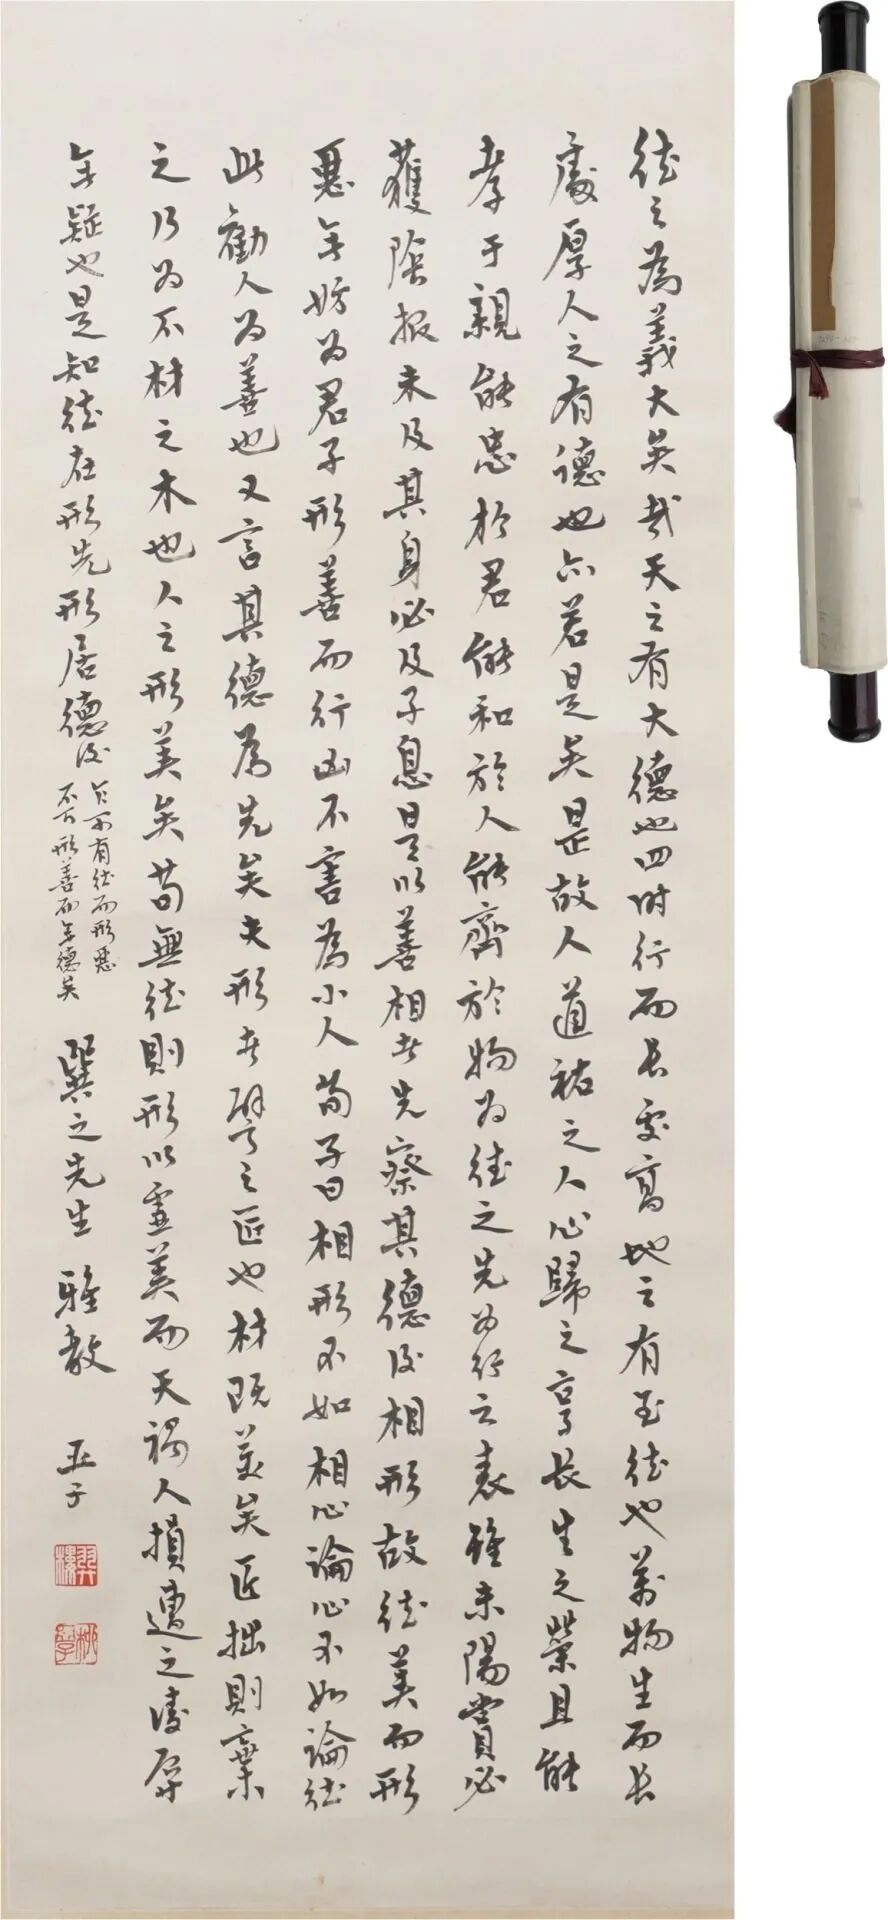 德之為義大矣哉天之有大德也四時行而長處高地之有至德也萬物生而長
處厚人之有德也亦若是矣是故人道祐之人心歸之享長生之榮且能
孝于親能忠於君能和於人能齊於物為德之先為行之表雖未陽賞必
獲陰報未及其身必及子息是以善相者先察其德後相形故德美而形
惡無妨為君子形善而行凶不害為小人荀子曰相形不如相心論心不如論德
此勸人為善也又言其德為先矣夫形者譬之匠也材既美矣匠拙則棄
之乃為不材之木也人之形美矣苟無德則形以虛美而天禍人損遭之
無疑也是知德在形先形居德後
寧可有德而形惡
不可形善而無德矣
巽之先生 雅教 亞子